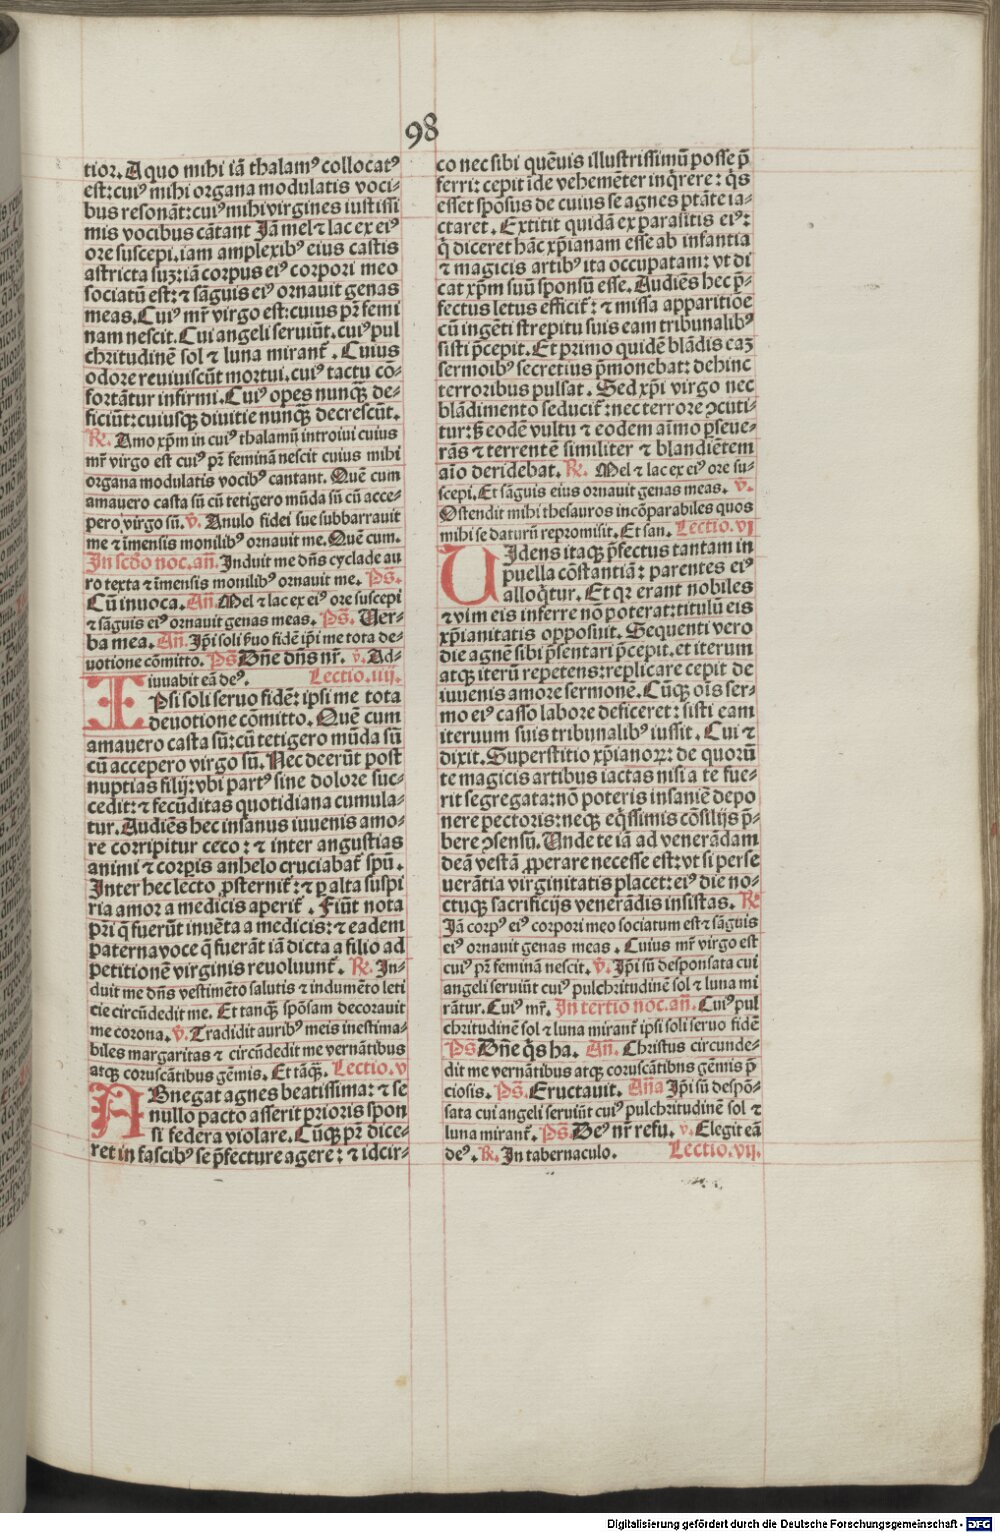 98
tior. A quo mihi iã thalamꝰ collocatꝰ
est: cuiꝰ mihi organa modulatis voci-
bus resonãt: cuiꝰ mihi virgines iustissi
mis vocibus cãtant Jã mel ⁊ lac ex eiꝰ
ore suscepi. iam amplexibꝰ eius castis
astricta suꝫ: iã corpus eiꝰ corpori meo
sociatũ est: ⁊ sãguis eiꝰ ornauit genas
meas. Cuiꝰ mr̃ virgo est: cuius pr̃ femi
nam nescit. Cui angeli seruiũt. cuiꝰ pul
chritudinẽ sol ⁊ luna mirant᷒. Cuius
odore reuiuiscũt mortui. cuiꝰ tactu cõ-
fortãtur infirmi. Cuiꝰ opes nunqꝫ de-
ficiũt: cuiusqꝫ diuitie nunqꝫ decrescũt.
R̃. Amo xp̃m in cuiꝰ thalamũ introiui cuius
mr̃ virgo est cuiꝰ pr̃ feminã nescit cuius mihi
organa modulatis vocibꝰ cantant. Quẽ cum
amauero casta sũ cũ tetigero mũda sũ cũ acce-
pero virgo sũ. ṽ. Anulo fidei sue subbarrauit
me ⁊ ĩmensis monilibꝰ ornauit me. Quẽ cum.
Jn scd̃o noc. añ. Jnduit me dñs cyclade au
ro texta ⁊ ĩmensis monilibꝰ ornauit me. Ps̃.
Cũ inuoca. Añ. Mel ⁊ lac ex eiꝰ ore suscepi
⁊ sãguis eiꝰ ornauit genas meas. Ps̃. Uer-
ba mea. Añ. Jp̃i soli ẜuo fidẽ ip̃i me tota de-
uotione cõmitto. Ps̃ Dñe dñs nr̃. ṽ. Ad-
iuuabit eã deꝰ. Lectio. iiij.
IPsi soli seruo fidẽ: ipsi me tota
deuotione cõmitto. Quẽ cum
amauero casta sũ: cũ tetigero mũda sũ
cũ accepero virgo sũ. Nec deerũt post
nuptias filij: vbi partꝰ sine dolore suc-
cedit: ⁊ fecũditas quotidiana cumula-
tur. Audiẽs hec insanus iuuenis amo-
re corripitur ceco: ⁊ inter angustias
animi ⁊ corꝑis anhelo cruciabat᷒ spũ.
Jnter hec lecto ꝓsternit᷒: ⁊ ꝑ alta suspi
ria amor a medicis aperit᷒. Fiũt nota
pr̃i q̃ fuerũt inuẽta a medicis: ⁊ eadem
paterna voce q̃ fuerãt iã dicta a filio ad
petitionẽ virginis reuoluunt᷒. R̃. Jn-
duit me dñs vestimẽto salutis ⁊ indumẽto leti
cie circũdedit me. Et tanqꝫ spõsam decorauit
me corona. ṽ. Tradidit auribꝰ meis inestima-
biles margaritas ⁊ circũdedit me vernãtibus
atqꝫ coruscãtibus gẽmis. Et tãqꝫ. Lectio. v
ABnegat agnes beatissima: ⁊ se
nullo pacto asserit prioris spon
si federa violare. Cũqꝫ pr̃ dice-
ret in fascibꝰ se p̃fecture agere: ⁊ idcir-
co nec sibi quẽuis illustrissimũ posse p̃
ferri: cepit ĩde vehemẽter inq̃rere: q̃s
esset spõsus de cuius se agnes ptãte ia-
ctaret. Extitit quidã ex parasitis eiꝰ:
q̃ diceret hãc xp̃ianam esse ab infantia
⁊ magicis artibꝰ ita occupatam: vt di
cat xp̃m suũ sponsũ esse. Audiẽs hec p̃-
fectus letus efficit᷒: ⁊ missa apparitiõe
cũ ingẽti strepitu suis eam tribunalibꝰ
sisti p̃cepit. Et primo quidẽ blãdis eaꝫ
sermoĩbꝰ secretius p̃monebat: dehinc
terroribus pulsat. Sed xp̃i virgo nec
blãdimento seducit᷒: nec terrore ꝯcuti-
tur: sꝫ eodẽ vultu ⁊ eodem aĩmo ꝑseue-
rãs ⁊ terrentẽ similiter ⁊ blandiẽtem
aĩo deridebat. R̃. Mel ⁊ lac ex eiꝰ ore su-
scepi. Et sãguis eius ornauit genas meas. ṽ.
Ostendit mihi thesauros incõparabiles quos
mihi se daturũ repromisit. Et san. Lectio. vj
UJdens itaqꝫ p̃fectus tantam in
puella cõstantiã: parentes eiꝰ
alloq̃tur. Et qꝛ erant nobiles
⁊ vim eis inferre nõ poterat: titulũ eis
xp̃ianitatis opposuit. Sequenti vero
die agnẽ sibi p̃sentari p̃cepit. et iterum
atqꝫ iterũ repetens: replicare cepit de
iuuenis amore sermonẽ. Cũqꝫ oĩs ser-
mo eiꝰ casso labore deficeret: sisti eam
iteruum suis tribunalibꝰ iussit. Cui ⁊
dixit. Superstitio xp̃ianoꝝ: de quorũ
te magicis artibus iactas nisi a te fue-
rit segregata: nõ poteris insaniẽ depo
nere pectoris: neqꝫ eq̃ssimis cõsilijs p̃-
bere ꝯsensũ. Unde te iã ad venerãdam
deã vestã ꝓperare necesse est: vt si perse
uerãtia virginitatis placet: eiꝰ die no-
ctuqꝫ sacrificijs venerãdis insistas. R̃
Jã corpꝰ eiꝰ corpori meo sociatum est ⁊ sãguis
eiꝰ ornauit genas meas. Cuius mr̃ virgo est
cuiꝰ pr̃ feminã nescit. ṽ. Jp̃i sũ desponsata cui
angeli seruiũt cuiꝰ pulchritudinẽ sol ⁊ luna mi
rãtur. Cuiꝰ mr̃. Jn tertio noc. añ. Cuiꝰ pul
chritudinẽ sol ⁊ luna mirant᷒ ipsi soli seruo fidẽ
Ps̃ Dñe q̃s ha. Añ. Christus circunde-
dit me vernãtibus atqꝫ coruscãtibns gẽmis p̃
ciosis. Ps̃. Eructauit. Añã Jp̃i sũ despõ-
sata cui angeli seruiũt cuiꝰ pulchritudinẽ sol ⁊
luna mirant᷒. Ps̃. Deꝰ nr̃ refu. ṽ. Elegit eã
deꝰ. R̃. Jn tabernaculo. Lectio. vij.
Digitalisierung gefördert durch die Deutsche Forschungsgemeinschaft - DFG